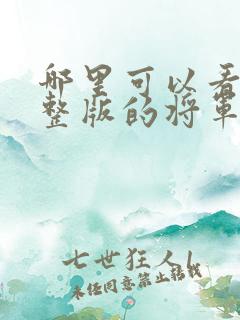 哪里可以看
整版的将军
七世狂人l
未经同意禁止转载